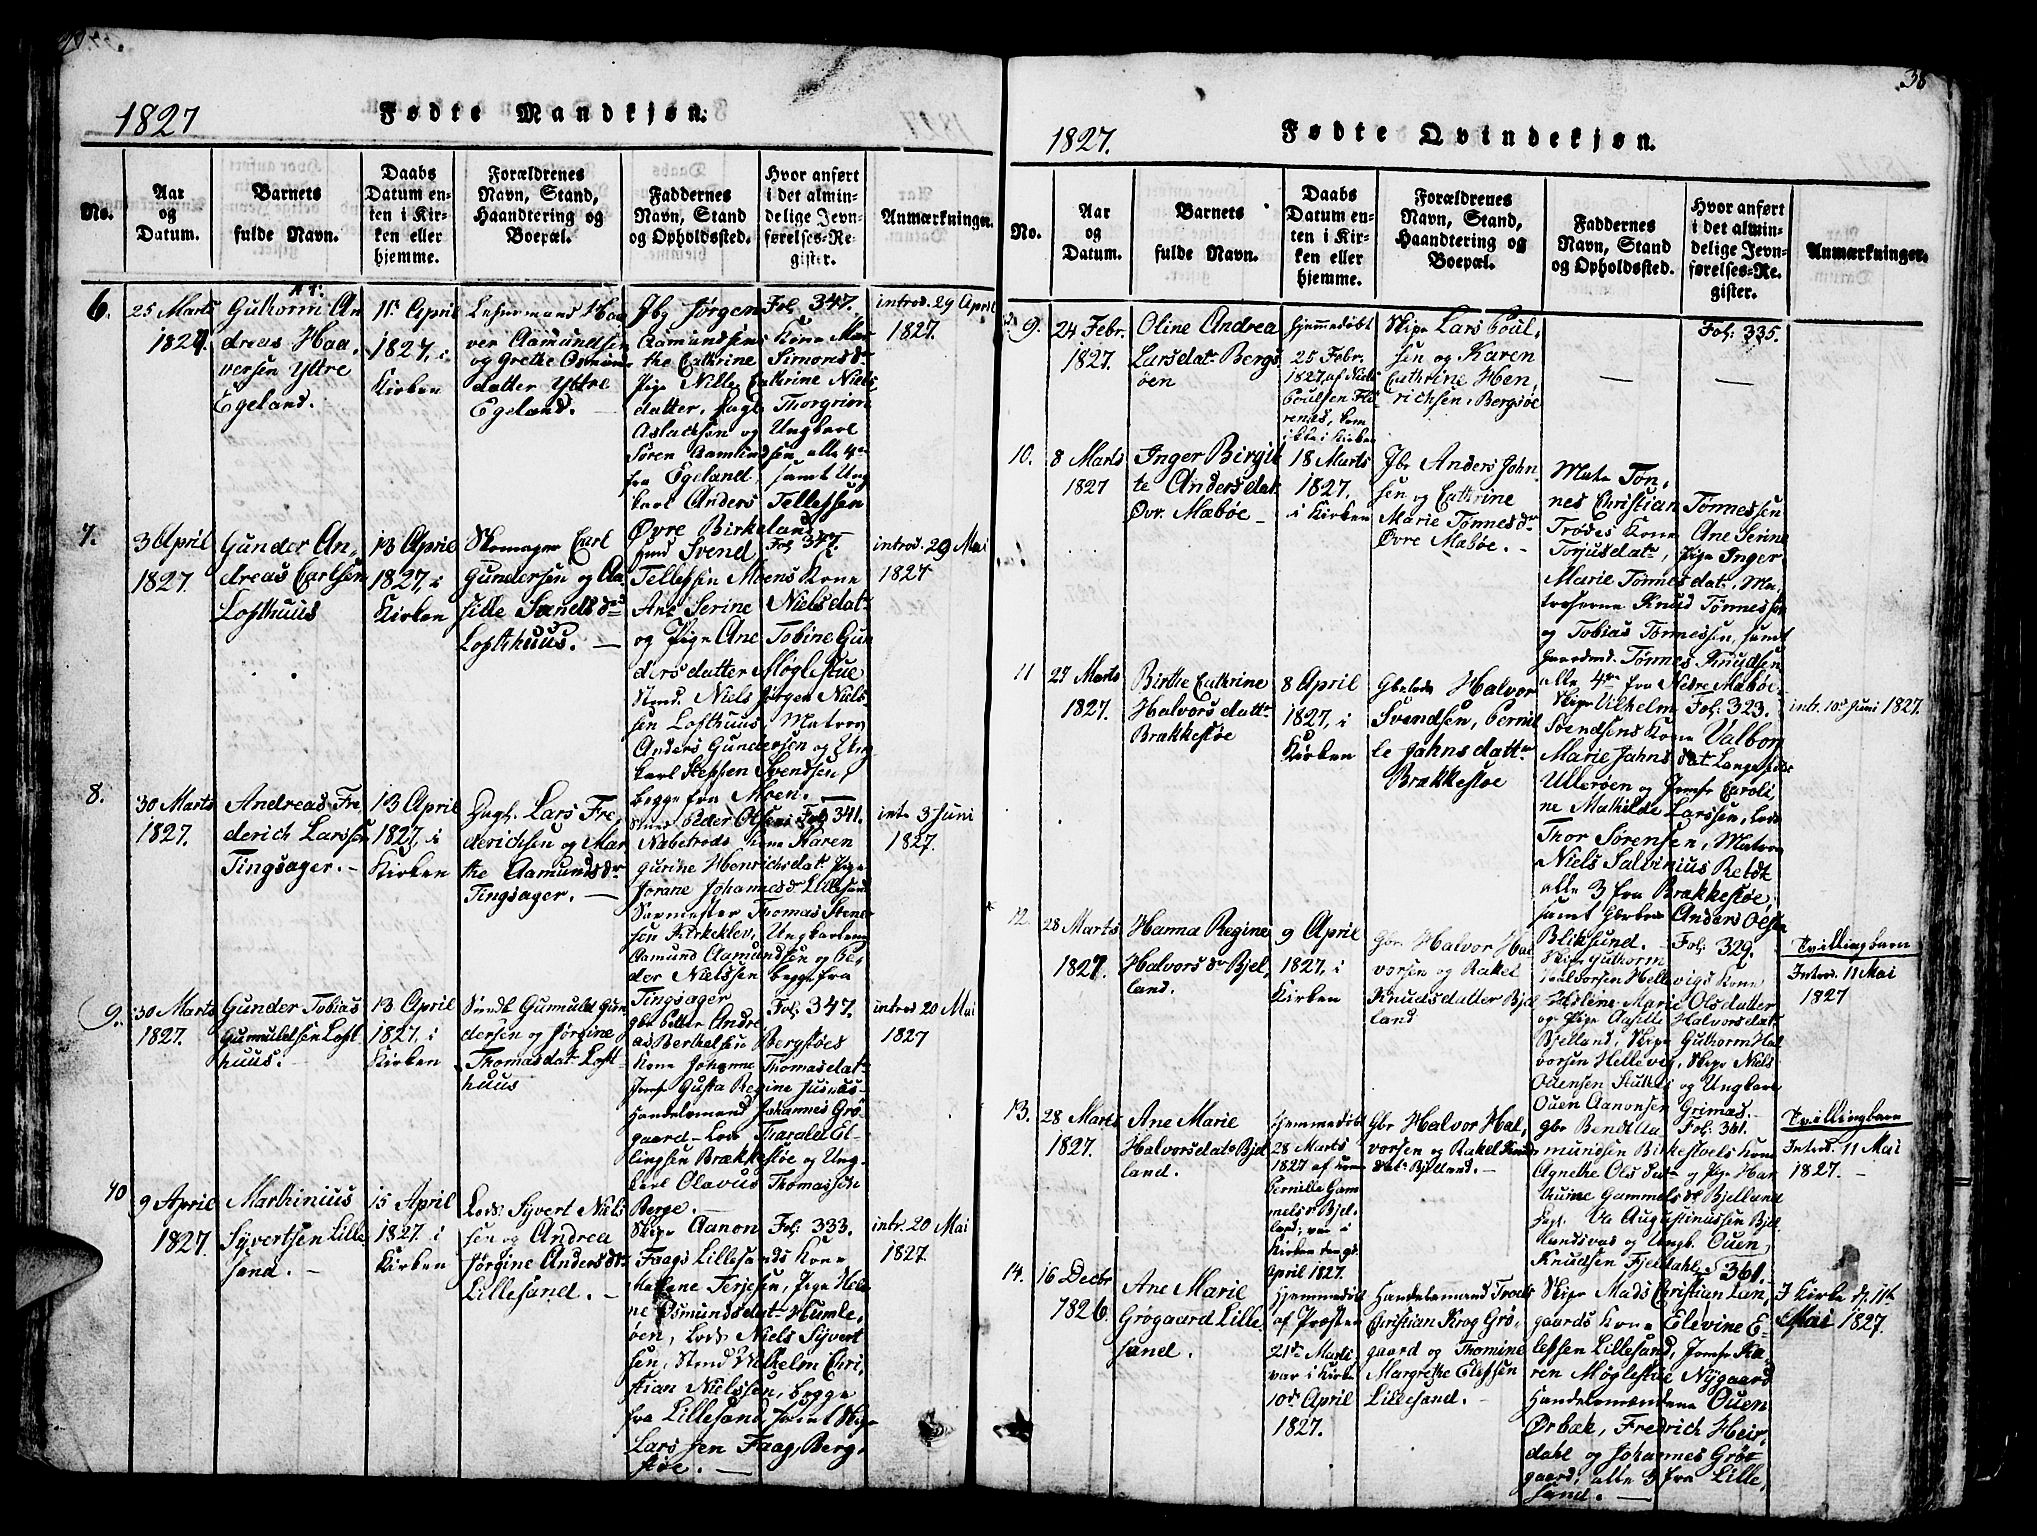 1827
Fødte Mandkjøn.
No.
Aar
og
Datum.
Barnets
fulde Navn.
Daabs
Datum en-
ten i Kir-
ken eller
hjemme.
Forældrenes
Navn, Stand,
Haandtering og
Boepæl.
Faddernes
Navn, Stand
og Opholdssted.
Hvor anført
i det almin-
delige Jevn-
førelses-Re-
gister.
Anmærkninger.
6.
25 Marts
1827.
Guthorm An
dreas Haa
versen Yttre
Egeland.
11te April
1827, i
Kirken
Lehnsmand Haa
ver Aamundsen
og Grethe Osmunds
datter Yttre
Egeland.
Jbg Jørgen
Aamundsens Kone Mar
the Cathrine Simonsdr
Pige Nille Cathrine Niels
datter, Sagl Thorgrim
Aslachsen og Ungkarl
Sören Aamundsen alle 4re
fra Egeland, samt Ung
karl Anders Tellefsen
Øvre Birkeland
Fol: 347.
introd. 29 April
1827.
7.
3 April
1827.
Gunder An-
dreas Carlsen
Lofthuus
13 April
1827, i
Kirken
Skomager Carl
Gundersen og An
sille Svendsdr
Lofthuus.
Huusmd Svend
Tellefsen Moens Kone
Ane Serine Nielsdatr
og Pige Ane Tobine Gun
dersdatter Møglestue
Stmd. Niels Jørgen Niels
sen Lofthuus, Matros
Anders Gundersen og Ung
karl Steffen Svendsen,
begge fra Moen.
Fol: 347.
introd. 29 Mai
1827
8.
30 Marts
1827.
Andreas Fre
derich Larssen
Tingsager.
13 April
1827, i
Kirken
Dagl. Lars Fre
derichsen og Mar
the Aamundsdr
Tingsager.
Stmd Peder Olsen
Nabetrøds Kone Karen
Gurine Henrichsdatr Pige
Jorane Johannesdr Lillesand
Savmester Thomas Stene
sen Kirkeklev, Ungkarlene
Aamund Aamundsen og Pe
der Nielssen begge fra
Tingsager
Fol: 341.
intr. 3 Juni
1827.
9.
30 Marts
1827.
Gunder Tobias
Gumuldsen Loft
huus.
13 April
1827, i
Kirken
Smed Gumuld Gun
dersen og Jørgine
Thomasdatr Loft
huus
Gbr Peder Andre
as Berthelsen Bergstøes
Kone Johanne Thomasdatr
Jomfr Gusta Regine
Handelsmand Johannes Grö
gaard, Lods Tharald El
lingsen Brækkestøe og Ung
karl Olavus Thomassen
Berge.
Fol: 347.
introd 20 Mai
1827
10
9 April
1827.
Mathinius
Syvertsen Lille
sand.
15 April
1827. i
Kirken
Lods Syvert Niels
sen og Andrea
Jørgine Andersdr
Lillesand.
Skipr Aanon
Faags Lillesands Kone
Helene Terjesen, Pige Hele
ne Osmundsdatr Humle
øen, Lods Niels Syvert
sen, Stmd Wilhelm Chri
stian Nielssen, begge
fra Lillesand samt Skipr
Larssen Faag, Berg
støe.
Fol: 333.
intr. 20 Mai
1827.
38
1827.
Fødte Qvindekjøn.
No.
Aar
og
Datum.
Barnets
fulde Navn.
Daabs
Datum en-
ten i Kir-
ken eller
hjemme.
Forældrenes
Navn, Stand,
Haandtering og
Boepæl.
Faddernes
Navn, Stand
og Opholdssted.
Hvor anført
i det almin-
delige Jevn-
førelses-Re-
gister.
Anmærkninger.
9.
24 Febr.
1827.
Oline Andrea
Larsdatr Bergs
øen
hjemmedøbt
25 Febr.
1827, af Niels
Poulsen
kom
ikke i Kirken
Skipr Lars Poul,
sen og Karen
Cathrine Hen,
richsen, Bergsøe
Fol: 335.
10.
8 Marts
1827
Inger Birgit
te Andersdatr
Øvr. Mæbøe
18 Marts
1827,
i Kirken
Jbr Anders John
sen og Cathrine
Marie Tønnesdr
Øvre Mæbøe.
Matr Tøn,
nes Christian Tønnessen
Trødes Kone Ane Serine
Torjusdatr, Pige Inger
Marie Tønnesdatr, Ma
troserne Knud Tønnessen
og Tobias Tønnessen, samt
Gaardmd. Tønnes Knudsen
alle 4re fra Nedre Mæbøe.
11
27 Marts
1827.
Birthe Cathrine
Halvorsdattr
Brækkestøe
8 April
1827, i
Kirken
Halvor
Svendsen, Pernil
le Jahnsdattr
Brækkestøe
Skipr Vilhelm
Svendsens Kone Valbor
Marie Jahnsdatr
Ulleröen og Jomfr Caroli
ne Mathilde Larssen, Lods
Thor Sörensen, Matros
Niels Salvinius Reldt
alle 3 fra Brækkestøe,
samt Anders Olsen
Bliksund.
Fol: 323.
intr. 10de Juni 1827.
12.
28 Marts
1827.
Hanna Regine
Halvorsdr Bjel,
land.
9 April
1827, i
Kirken
Gbr Halvor Hal
vorsen og Rakel
Knudsdatter Bjel
land
Skipr Guthorm
Halvorsen Hellevigs Kone
Helene Marie Olsdatter
og Pige Anselle Halvorsdatr
Bjelland, Skipr Guthorm Hal
vorsen Hellevig, Skipr Niels
Odensen Stutte og Ungkarl
Ouen Aanonsen Grimaas.
Fol: 329.
Tvillingbarn
Introd. 11 Mai
1827
13.
28 Marts
1827.
Ane Marie
Halvorsdatr Bjel
land.
hjemmedøbt
28 Marts
1827 af Kone
Pernille Gam
melsdr Bjel,
land; var i
Kirken den 9de
April 1827.
Gbr Halvor Hal,
vorsen og Rakel Knuds
datr Bjelland.
Gbr Bendix Aa
mundsen Birkestvels Kone
Agnethe Olsdatr og Pige Han
Gammelsdr Bjelland
Ole Augustinussen Bjel
landsvas og Ungk. Ouen
Knudsen Fjeldahl.
Fol: 361.
Tvillingbarn
Introd. 11 Mai
1827.
14.
16 Decbr
1826.
Ane Marie
Grøgaard Lille
sand.
hjemmedöbt
af Præsten
21de Marts
var i Kirke
10de April
1827.
Handelsmand Troels
Christian Krog Grö,
gaard og Thomine
Margrethe Elefsen
Lillesand.
Skipr Mads Christian Lan,
gaards Kone Elevine E-
lefsen Lillesand, Jomfr Ka,
ren Møglestue Nygaard
Handelsmændene Ouen
Ørbæk, Fredrich Heir,
dahl og Johannes Grö-
gaard, alle 3 fra Lille
sand.
361.
I Kirke d. 11te
Mai 1827.